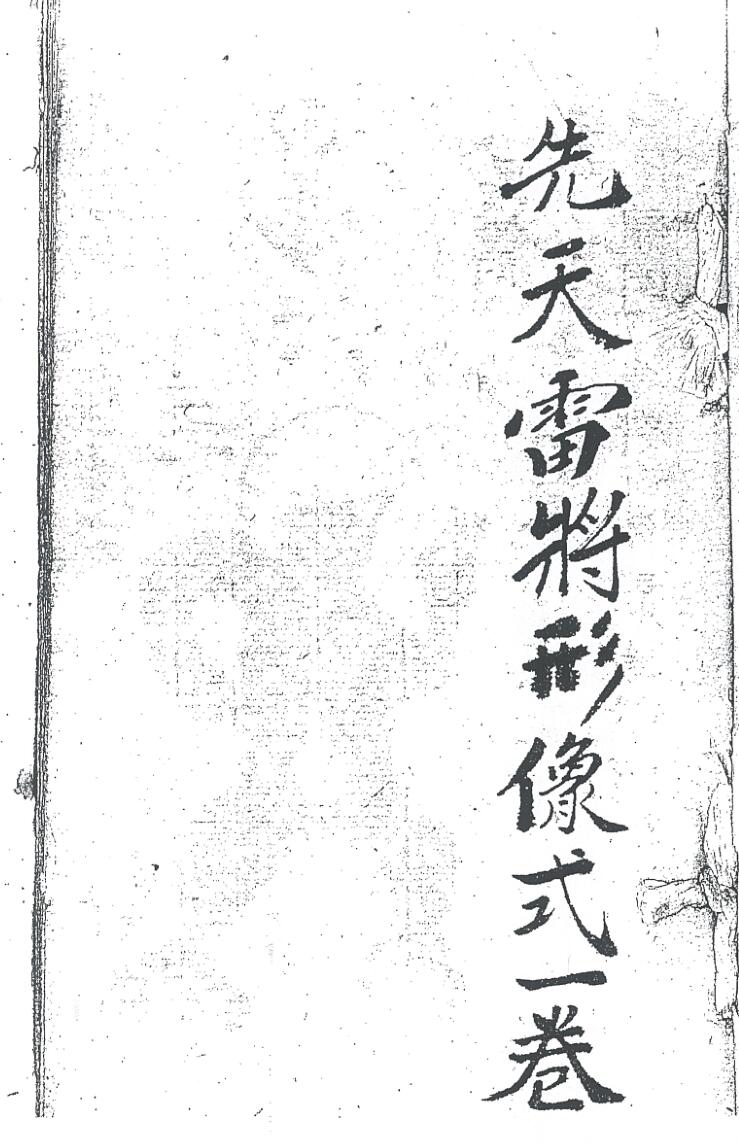 先天雷將形像式一卷